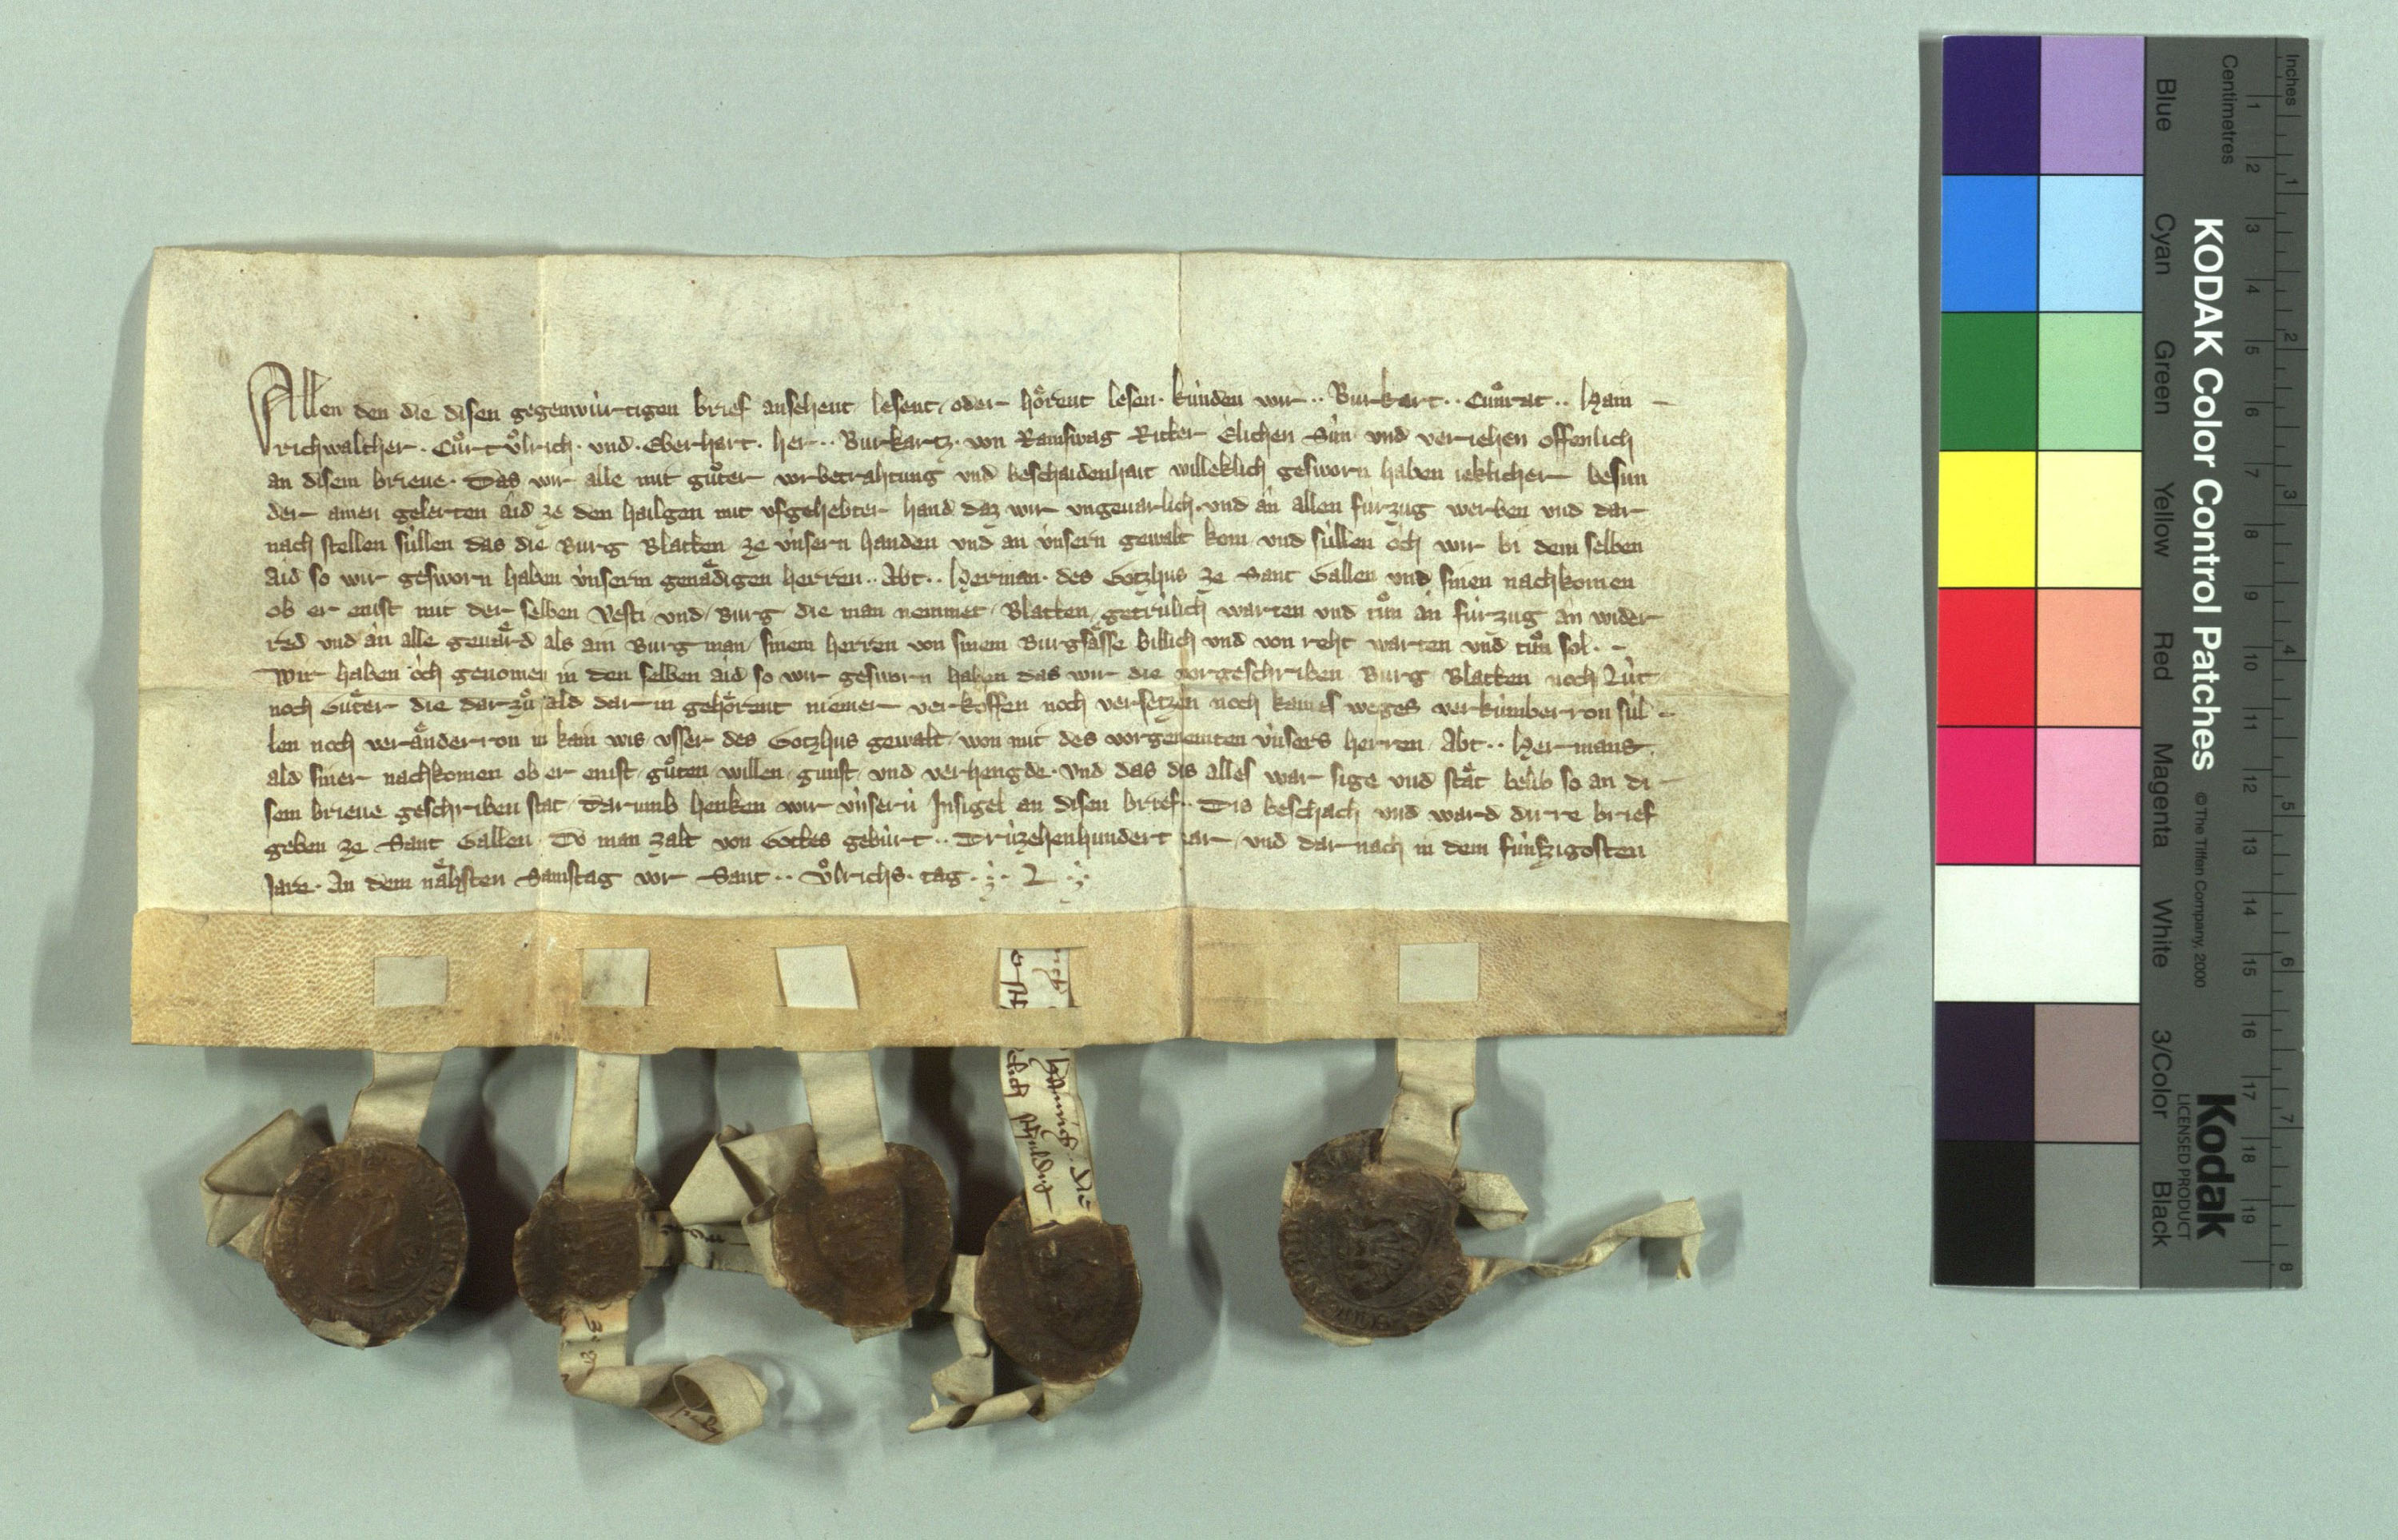 Allen den die disen gegenwu̍rtigen brief ansehent lesent, oder hoͤrent lesen· ku̍nden wir ·· Burkart ·· Cuͦnrat ·· Hain –
richwalther · Cuͦrt Uͦlrich · und · Eberhart · her ·· Burkartz · von Ramswag Ritter Elichen Su̍n und veriehen offenlich
an disem brieue · Das wir alle mit guͦter vorbetrahtung und beschaidenhait willeklich gesworn haben ieklicher besun
der ainen gelerten aid ze den hailgen mit ufgehebter hand daz wir ungeuarlich · und an allen fu̍rzug werben und dar
nach stellen su̍llen das die Burg Blatten ze u̍nsern handen und an u̍nsern gewalt kom und su̍llen och wir bi dem selben
Aid so wir gesworn haben u̍nserm genaͤdigen herren ·· Abt ·· Herman · des Gotzhus ze Sant Gallen und sinen nachkomen
ob er enist mit der selben Vesti und Burg die man nemmet Blatten getru̍lich warten und tuͦn an fu̍rzug an wider
red und an alle geuaͤrd als ain Burgman sinem herren von sinem Burgsaͤsse billich und von reht warten und tuͦn sol · –
Wir haben och genomen in den selben aid so wir gesworn haben das wir die vorgeschriben Burg Blatten noch Lu̍t
noch Guͤter die darzuͦ ald dar in gehoͤrent niemer verkoffen noch versetzen noch kaines weges verku̍mberron su̍l –
len noch veraͤnderron in kain wis usser des Gotzhus gewalt won mit des vorgenemten u̍nsers herren Abt ·· Hermans
ald siner nachkomen ob er enist guͦten willen gunst und verhengde · und das dis alles war sige und staͤt belib so an di –
sem brieue geschriben stat Darumb henken wir u̍nseru̍ Insigel an disen brief ·· Dis beschach und ward dirre brief
geben ze Sant Gallen Do man zalt von Gottes gebu̍rt ·· Dru̍zehenhundert iar und darnach in dem fu̍nfzigosten
Jare · An dem naͤhsten Samstag vor Sant ·· Uͦlrichs · tag ·
KODAK Color Control Patches
©The Tiffen Company, 2000
Kodak
LICENSED PRODUCT
Inches
Centimetres
Blue
Cyan
Green
Yellow
Red
Magenta
White
3/Color
Black
1 2 3 4 5 6 7 8 9 10 11 12 13 14 15 16 17 18 19
1 2 3 4 5 6 7 8